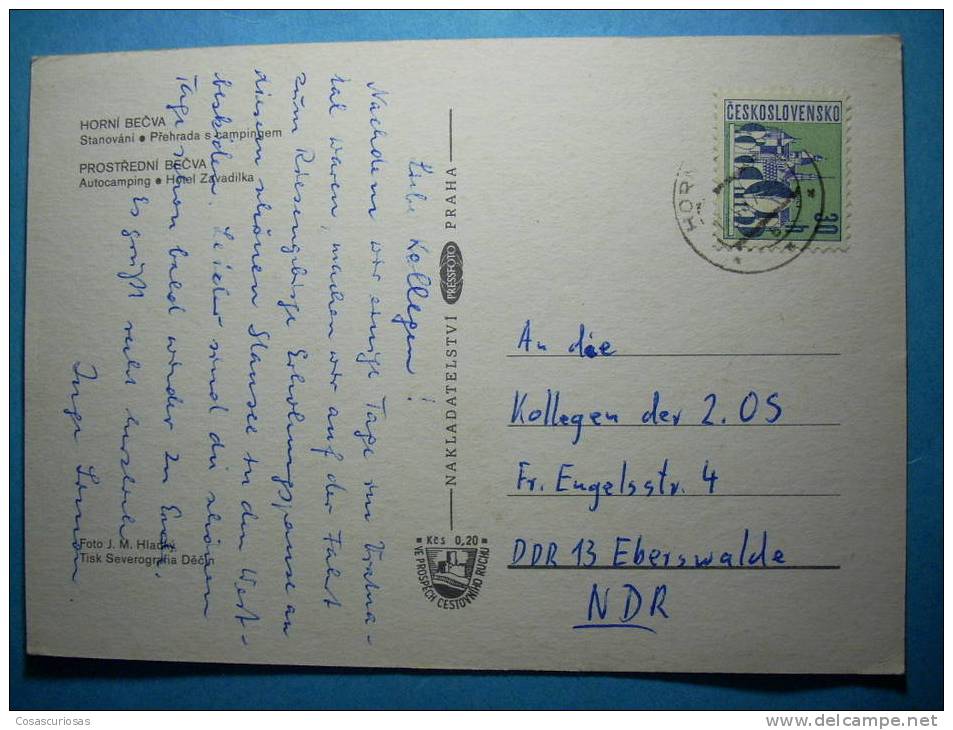 HORNÍ BEČVA
Stanování ● Přehrada s campingem
PROSTŘEDNÍ BEČVA
Autocamping ● Hotel Zavadilka
Liebe Kollegen!
Nachdem wir einige Tage im Vratna-
tal waren, machen wir auf der Fahrt
zum Riesengebirge Erholungspause an
diesem schönen Stausee in den West-
beskiden. Leider sind die schönen
Tage schon bald wieder zu Ende.
Es grüßt recht herzlich
Inge
Foto J. M. Hladký
Tisk Severografia Děčín
NAKLADATELSTVÍ PRESSFOTO PRAHA
Kčs 0,20
VE PROSPĚCH CESTOVNÍHO RUCHU
ČESKOSLOVENSKO
30 h
HOR
An die
Kollegen der 2. OS
Fr. Engelsstr. 4
DDR 13 Eberswalde
NDR
Cosascuriosas
www.delcampe.net